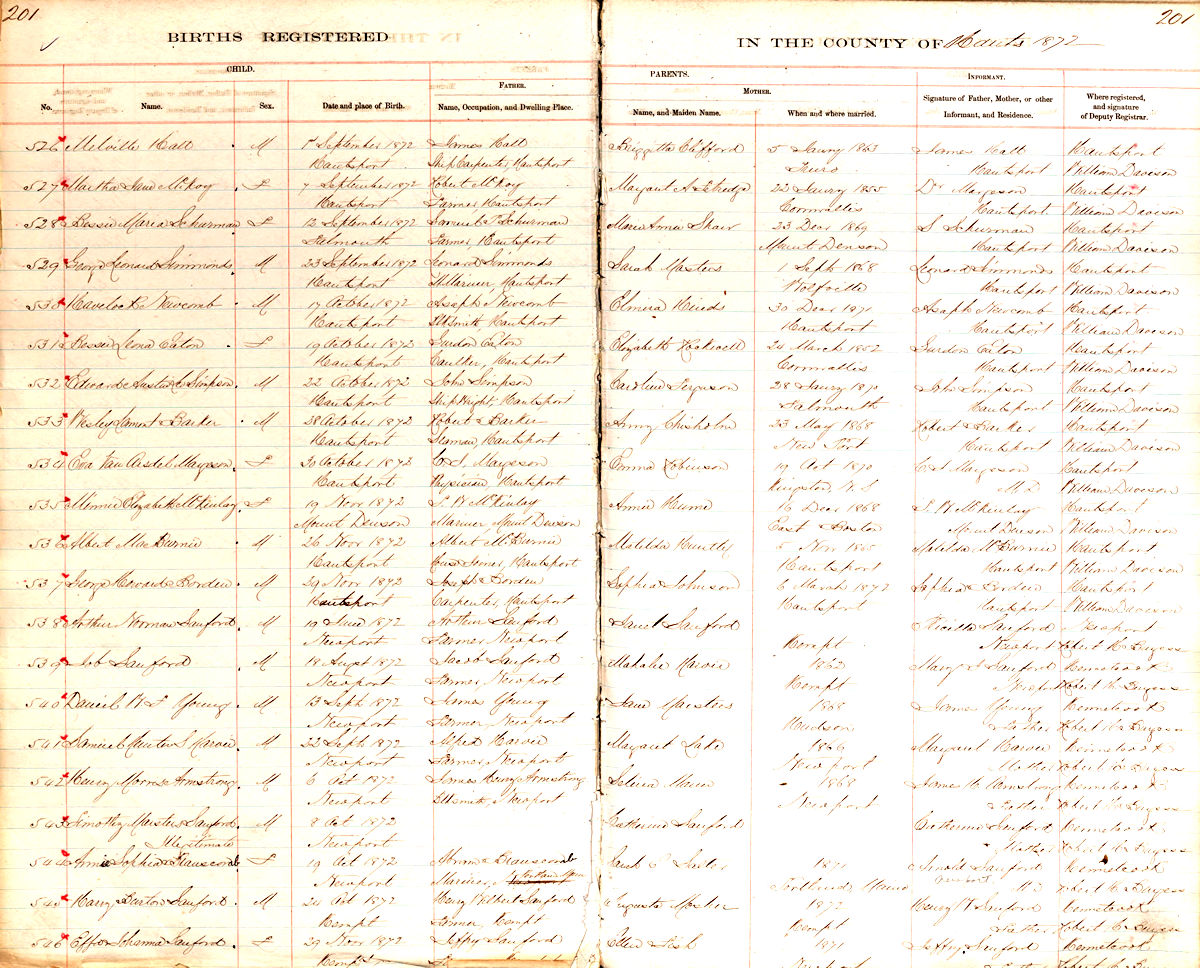 201
201
BIRTHS REGISTERED
IN THE COUNTY OF Hants 1872
CHILD.
PARENTS.
FATHER.
MOTHER.
INFORMANT.
No.
Name.
Sex.
Date and place of Birth.
Name, Occupation, and Dwelling Place.
Name, and Maiden Name.
When and where married.
Signature of Father, Mother, or other Informant, and Residence.
Where registered, and signature of Deputy Registrar.
526 Melville Hall M 1st September 1872 James Hall 5 1863 James Hall Hantsport
Hantsport Ship Carpenter, Hantsport Truro Hantsport William Davison
527 Martha Jane McKoy F 7 September 1872 Robert McKoy Margaret A 22 1855 Dr Margeson Hantsport
Hantsport Farmer, Hantsport Cornwallis Hantsport William Davison
528 Bessie Maria Schurman F 12 September 1872 Samuel Schurman 23 1869 S Schurman Hantsport
Falmouth Farmer, Hantsport Mount Denson Hantsport William Davison
529 George Leonard Simmonds M 23 September 1872 Leonard Simmonds Sarah Masters 1 Sept 1868 Leonard Simmonds Hantsport
Hantsport Mariner, Hantsport Wolfville Hantsport William Davison
530 Havelock Newcomb M 17 October 1872 Asaph Newcomb Elmira 30 Asaph Newcomb Hantsport
Hantsport Hantsport Hantsport Hantsport William Davison
531 Bessie Leona Eaton F 19 October 1872 Gurdon Eaton Elizabeth 24 March 1852 Gurdon Eaton Hantsport
Hantsport Caulker, Hantsport Cornwallis Hantsport William Davison
532 Edward Simpson M 22 October 1872 John Simpson Caroline Ferguson 28 1870 John Simpson Hantsport
Hantsport Hantsport Falmouth Hantsport William Davison
533 Wesley Lamont Barker M 28 October 1872 Robert Barker Chisholm 23 May 1868 Robert Barker Hantsport
Hantsport Seaman, Hantsport New Port Hantsport William Davison
534 Eva Van Ausdel Margeson F 30 October 1872 C S Margeson Emma Robinson 19 Oct 1870 C S Margeson Hantsport
Hantsport Physician, Hantsport Kingston, N. S M. D. William Davison
535 Minnie Elizabeth McKinlay F 19 Novr 1872 McKinlay Annie Hume 16 1868 McKinlay Hantsport
Mount Denson Mariner Mount Denson East Boston Mount Denson William Davison
536 Albert MacBurnie M 26 Novr 1872 Albert McBurnie Matilda Huntly 5 Novr Matilda McBurnie Hantsport
Hantsport House Joiner, Hantsport Hantsport Hantsport William Davison
537 George Howard Borden M 29 Novr 1872 Joseph Borden Sophia Johnson 6 March 1872 Sophia Borden Hantsport
Hantsport Carpenter, Hantsport Hantsport Hantsport William Davison
538 Arthur Norman Sanford M 19 June 1872 Arthur Sanford Janet Sanford Sanford Newport
Newport Farmer, Newport Kempt Newport Robert C. Burgess
539 Job Sanford M 18 August 1872 Jacob Sanford Mahala Harvie 1862 Mary S Sanford Kennetcook
Newport Farmer, Newport Kempt Newport Robert C. Burgess
540 Daniel W F Young M 13 Sept 1872 James Young Jane Masters 1868 James Young Kennetcook
Newport Farmer, Newport Father Robert C. Burgess
541 Samuel J Harvie M 22 Sept 1872 Alfred Harvie Margaret Lake 1869 Margaret Harvie Kennetcook
Newport Farmer Newport Newport Mother Robert C Burgess
542 Henry Morris Armstrong M 6 Oct 1872 James Henry Armstrong 1868 James H Armstrong Kennetcook
Newport Newport Newport Father Robert C. Burgess
543 Timothy Masters Sanford M 8 Oct 1872 Catherine Sanford Catherine Sanford Kennetcook
Illegitimate Newport Mother Robert C Burgess
544 Annie Sophia F 19 Oct 1872 Sarah 1871 Arnold Sanford Kennetcook
Newport Mariner, Portland Maine Newport Robert C Burgess
545 Harry Burton Sanford M 24 Oct 1872 Henry Wilbert Sanford Augusta Mosher 1872 Henry W Sanford Kennetcook
Kempt Farmer, Kempt Kempt Father Robert C. Burgess
546 Effie Sanford F 29 Novr 1872 Jeffry Sanford Ellen Fish 1871 Jeffry Sanford Kennetcook
Kempt